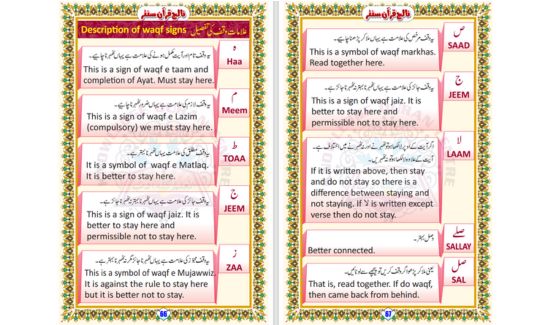 نالج قرآن سنٹر
Description of waqf signs علامات وقف کی تفصیل
ہ
Haa
یہ وقف تام اور آیت مکمل ہونے کی علامت ہے یہاں ٹھہرنا چاہیے۔
This is a sign of waqf e taam and
completion of Ayat. Must stay here.
م
Meem
یہ وقف لازم کی علامت ہے یہاں ضرور ٹھہرنا چاہیے۔
This is a sign of waqf e Lazim
(compulsory) we must stay here.
ط
TOAA
یہ وقف مطلق کی علامت ہے یہاں ٹھہرنا بہتر ہے۔
It is a symbol of waqf e Matlaq.
It is better to stay here.
ج
JEEM
یہ وقف جائز کی علامت ہے یہاں ٹھہرنا بہتر نہ ٹھہرنا جائز ہے۔
This is a sign of waqf jaiz. It is
better to stay here and
permissible not to stay here.
ز
ZAA
یہ وقف مجوز کی علامت ہے یہاں نہ ٹھہرنا بہتر ہے۔
This is a symbol of waqf e Mujawwiz.
It is against the rule to stay here
but it is better not to stay.
66
نالج قرآن سنٹر
ص
SAAD
یہ وقف مرخص کی علامت ہے یہاں ملا کر پڑھنا چاہیے۔
This is a symbol of waqf markhas.
Read together here.
ج
JEEM
یہ وقف جائز کی علامت ہے یہاں ٹھہرنا بہتر نہ ٹھہرنا جائز ہے۔
This is a sign of waqf jaiz. It is
better to stay here and
permissible not to stay here.
لا
LAAM
If it is written above, then stay
and do not stay so there is a
difference between staying and
not staying. If لا is written except
verse then do not stay.
صلے
SALLAY
وصل بہتر۔
Better connected.
صل
SAL
یعنی ملا کر پڑھو اگر وقف کریں تو پیچھے سے لوٹائیں۔
That is, read together. If do waqf,
then came back from behind.
67